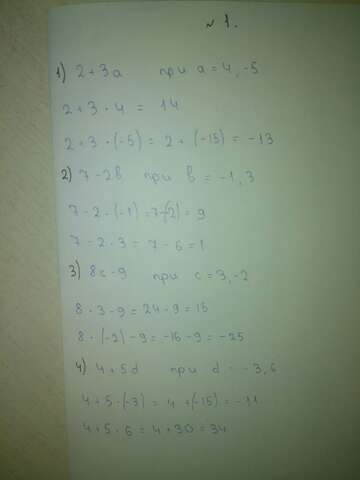 № 1.
1) 2 + 3a при a = 4, -5
2 + 3 · 4 = 14
2 + 3 · (-5) = 2 + (-15) = -13
2) 7 - 2в при в = -1, 3
7 - 2 · (-1) = 7-(-2) = 9
7 - 2 · 3 = 7 - 6 = 1
3) 8c - 9 при c = 3, -2
8 · 3 - 9 = 24 - 9 = 15
8 · (-2) - 9 = -16 - 9 = -25
4) 4 + 5d при d = -3, 6
4 + 5 · (-3) = 4 + (-15) = -11
4 + 5 · 6 = 4 + 30 = 34